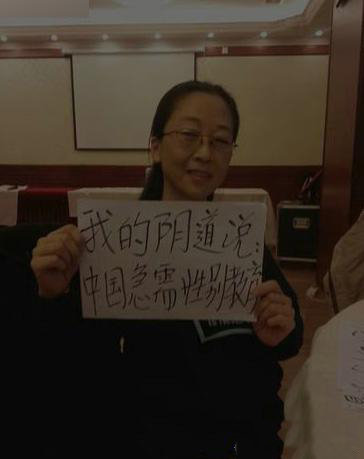 我的阴道说：
中国急需性别教育